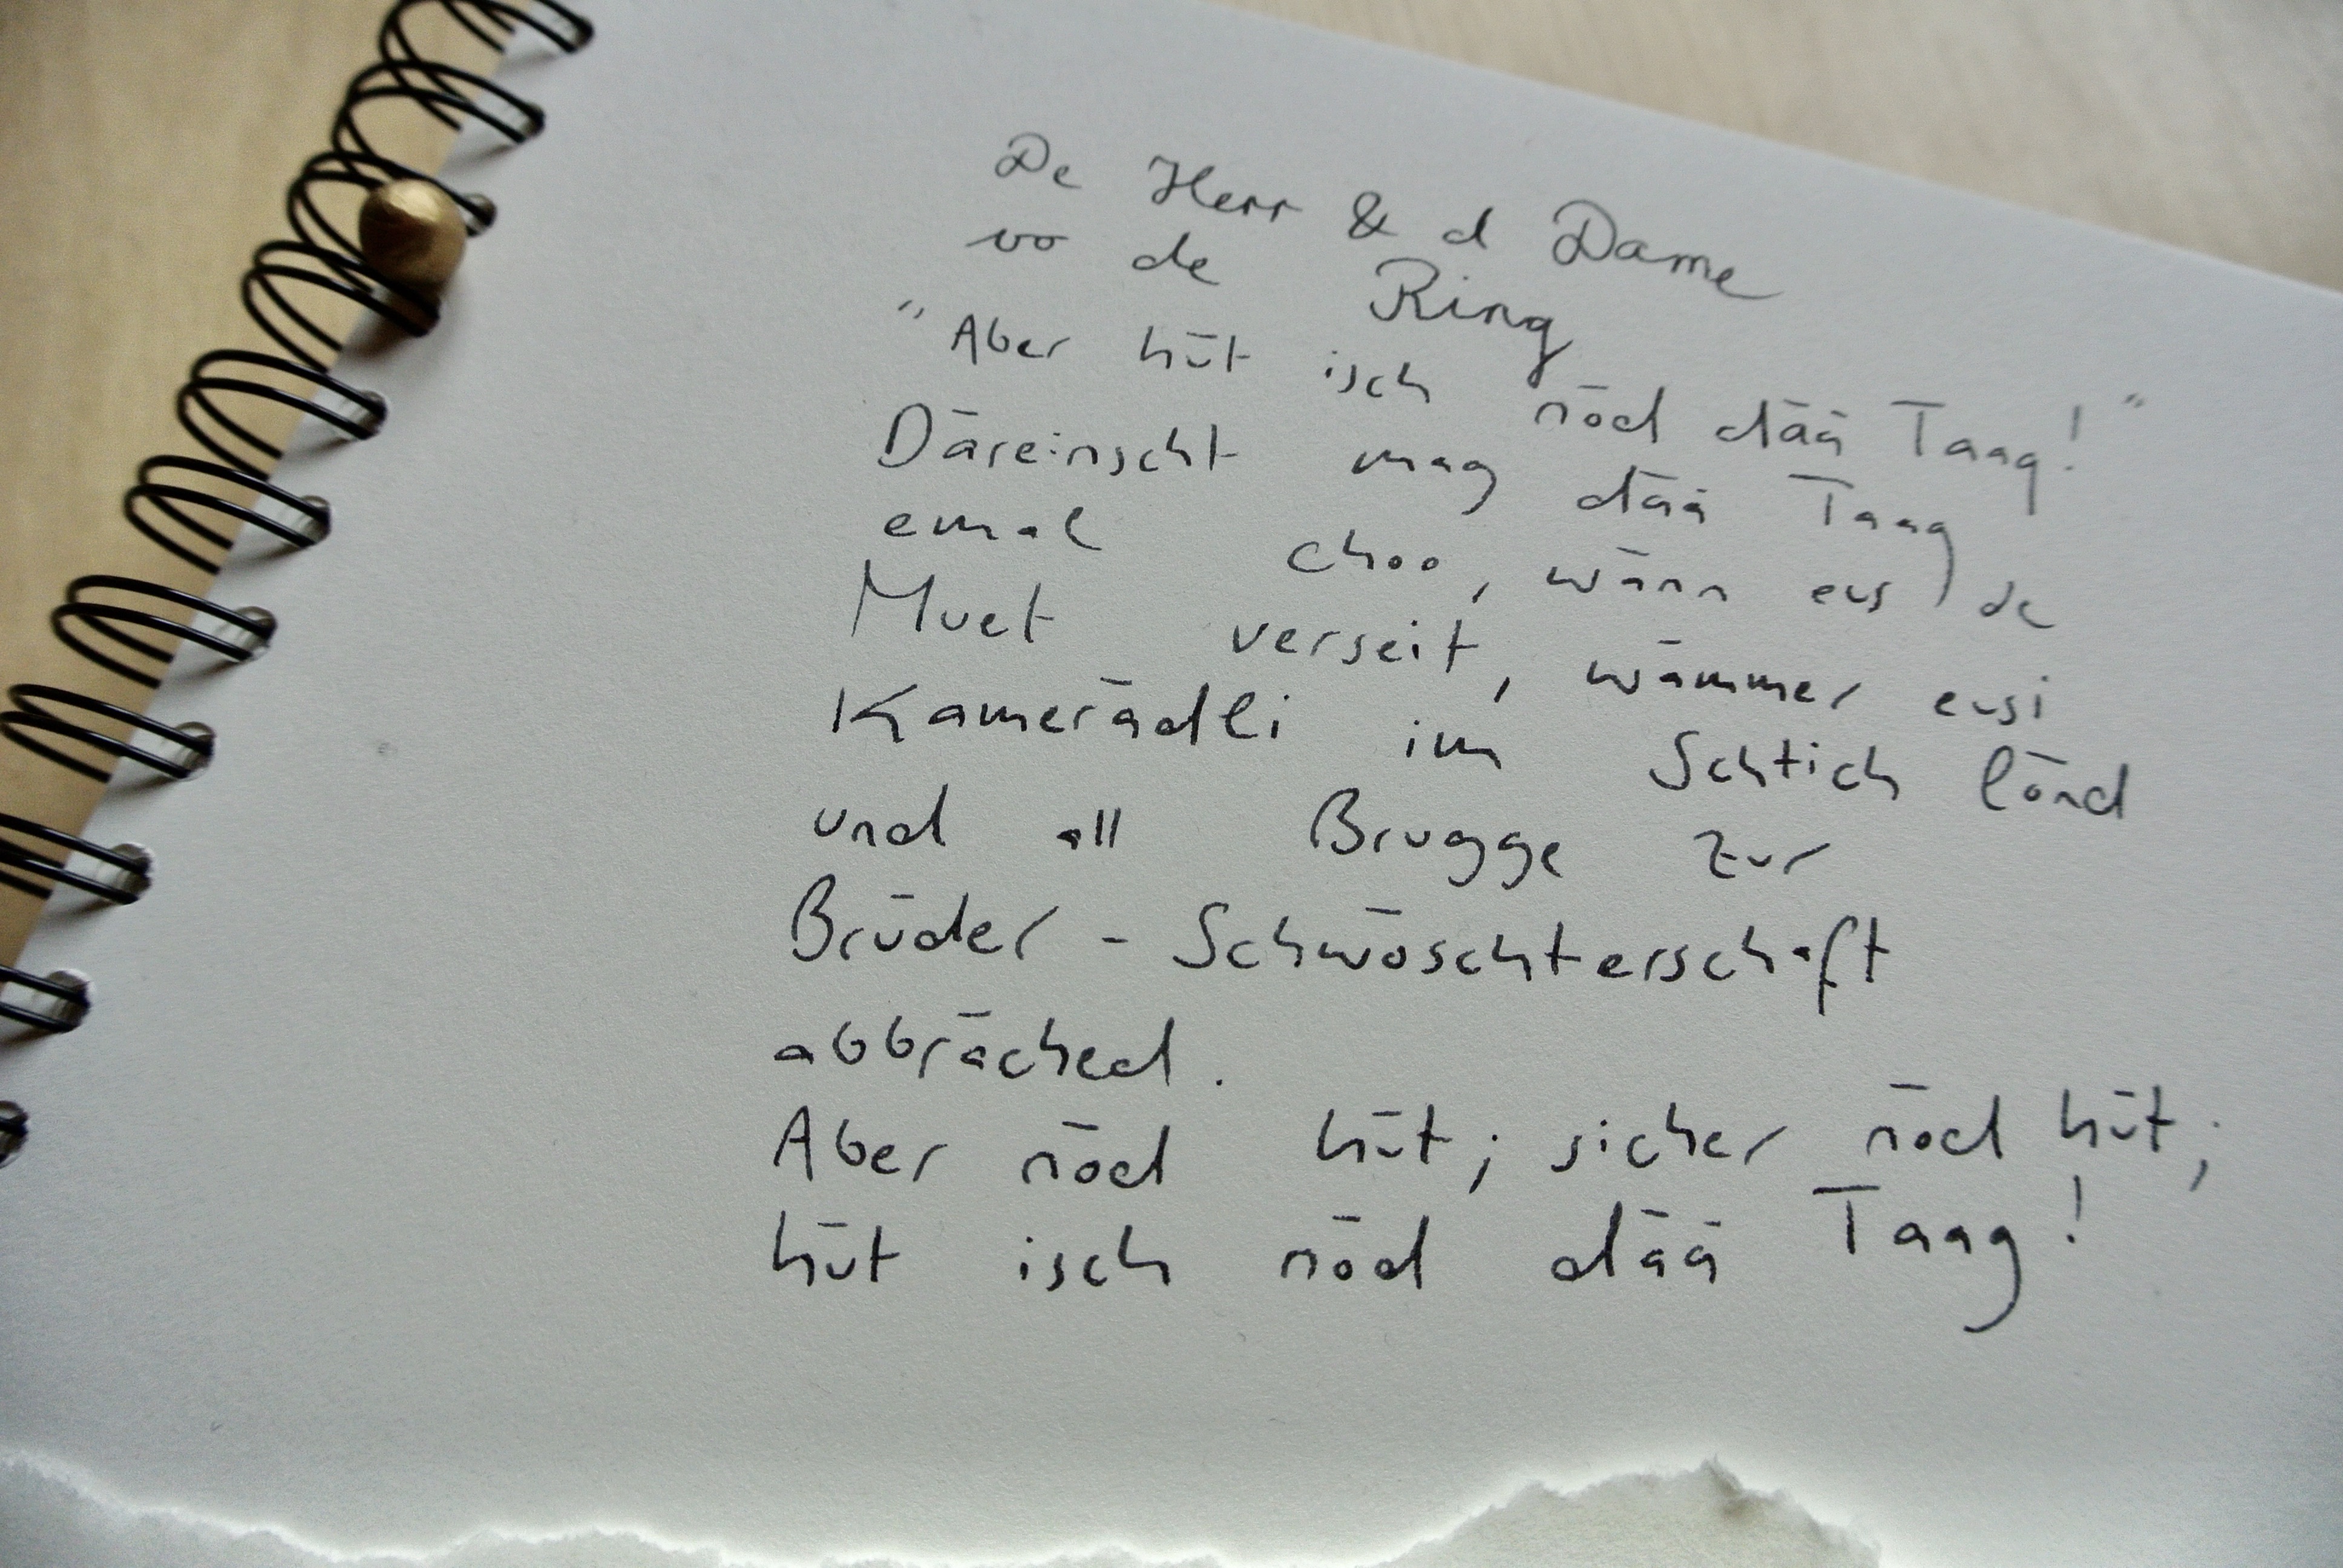 De Herr & d Dame
vo de Ring
"Aber hüt isch nöd dää Taag!"
Däreinscht mag dää Taag
emal choo, wänn eus de
Muet verseit, wämmer eusi
Kamerädli im Schtich lönd
und all Brugge zur
Brüder-Schwöschterschaft
abbräched.
Aber nöd hüt; sicher nöd hüt;
hüt isch nöd dää Taag!